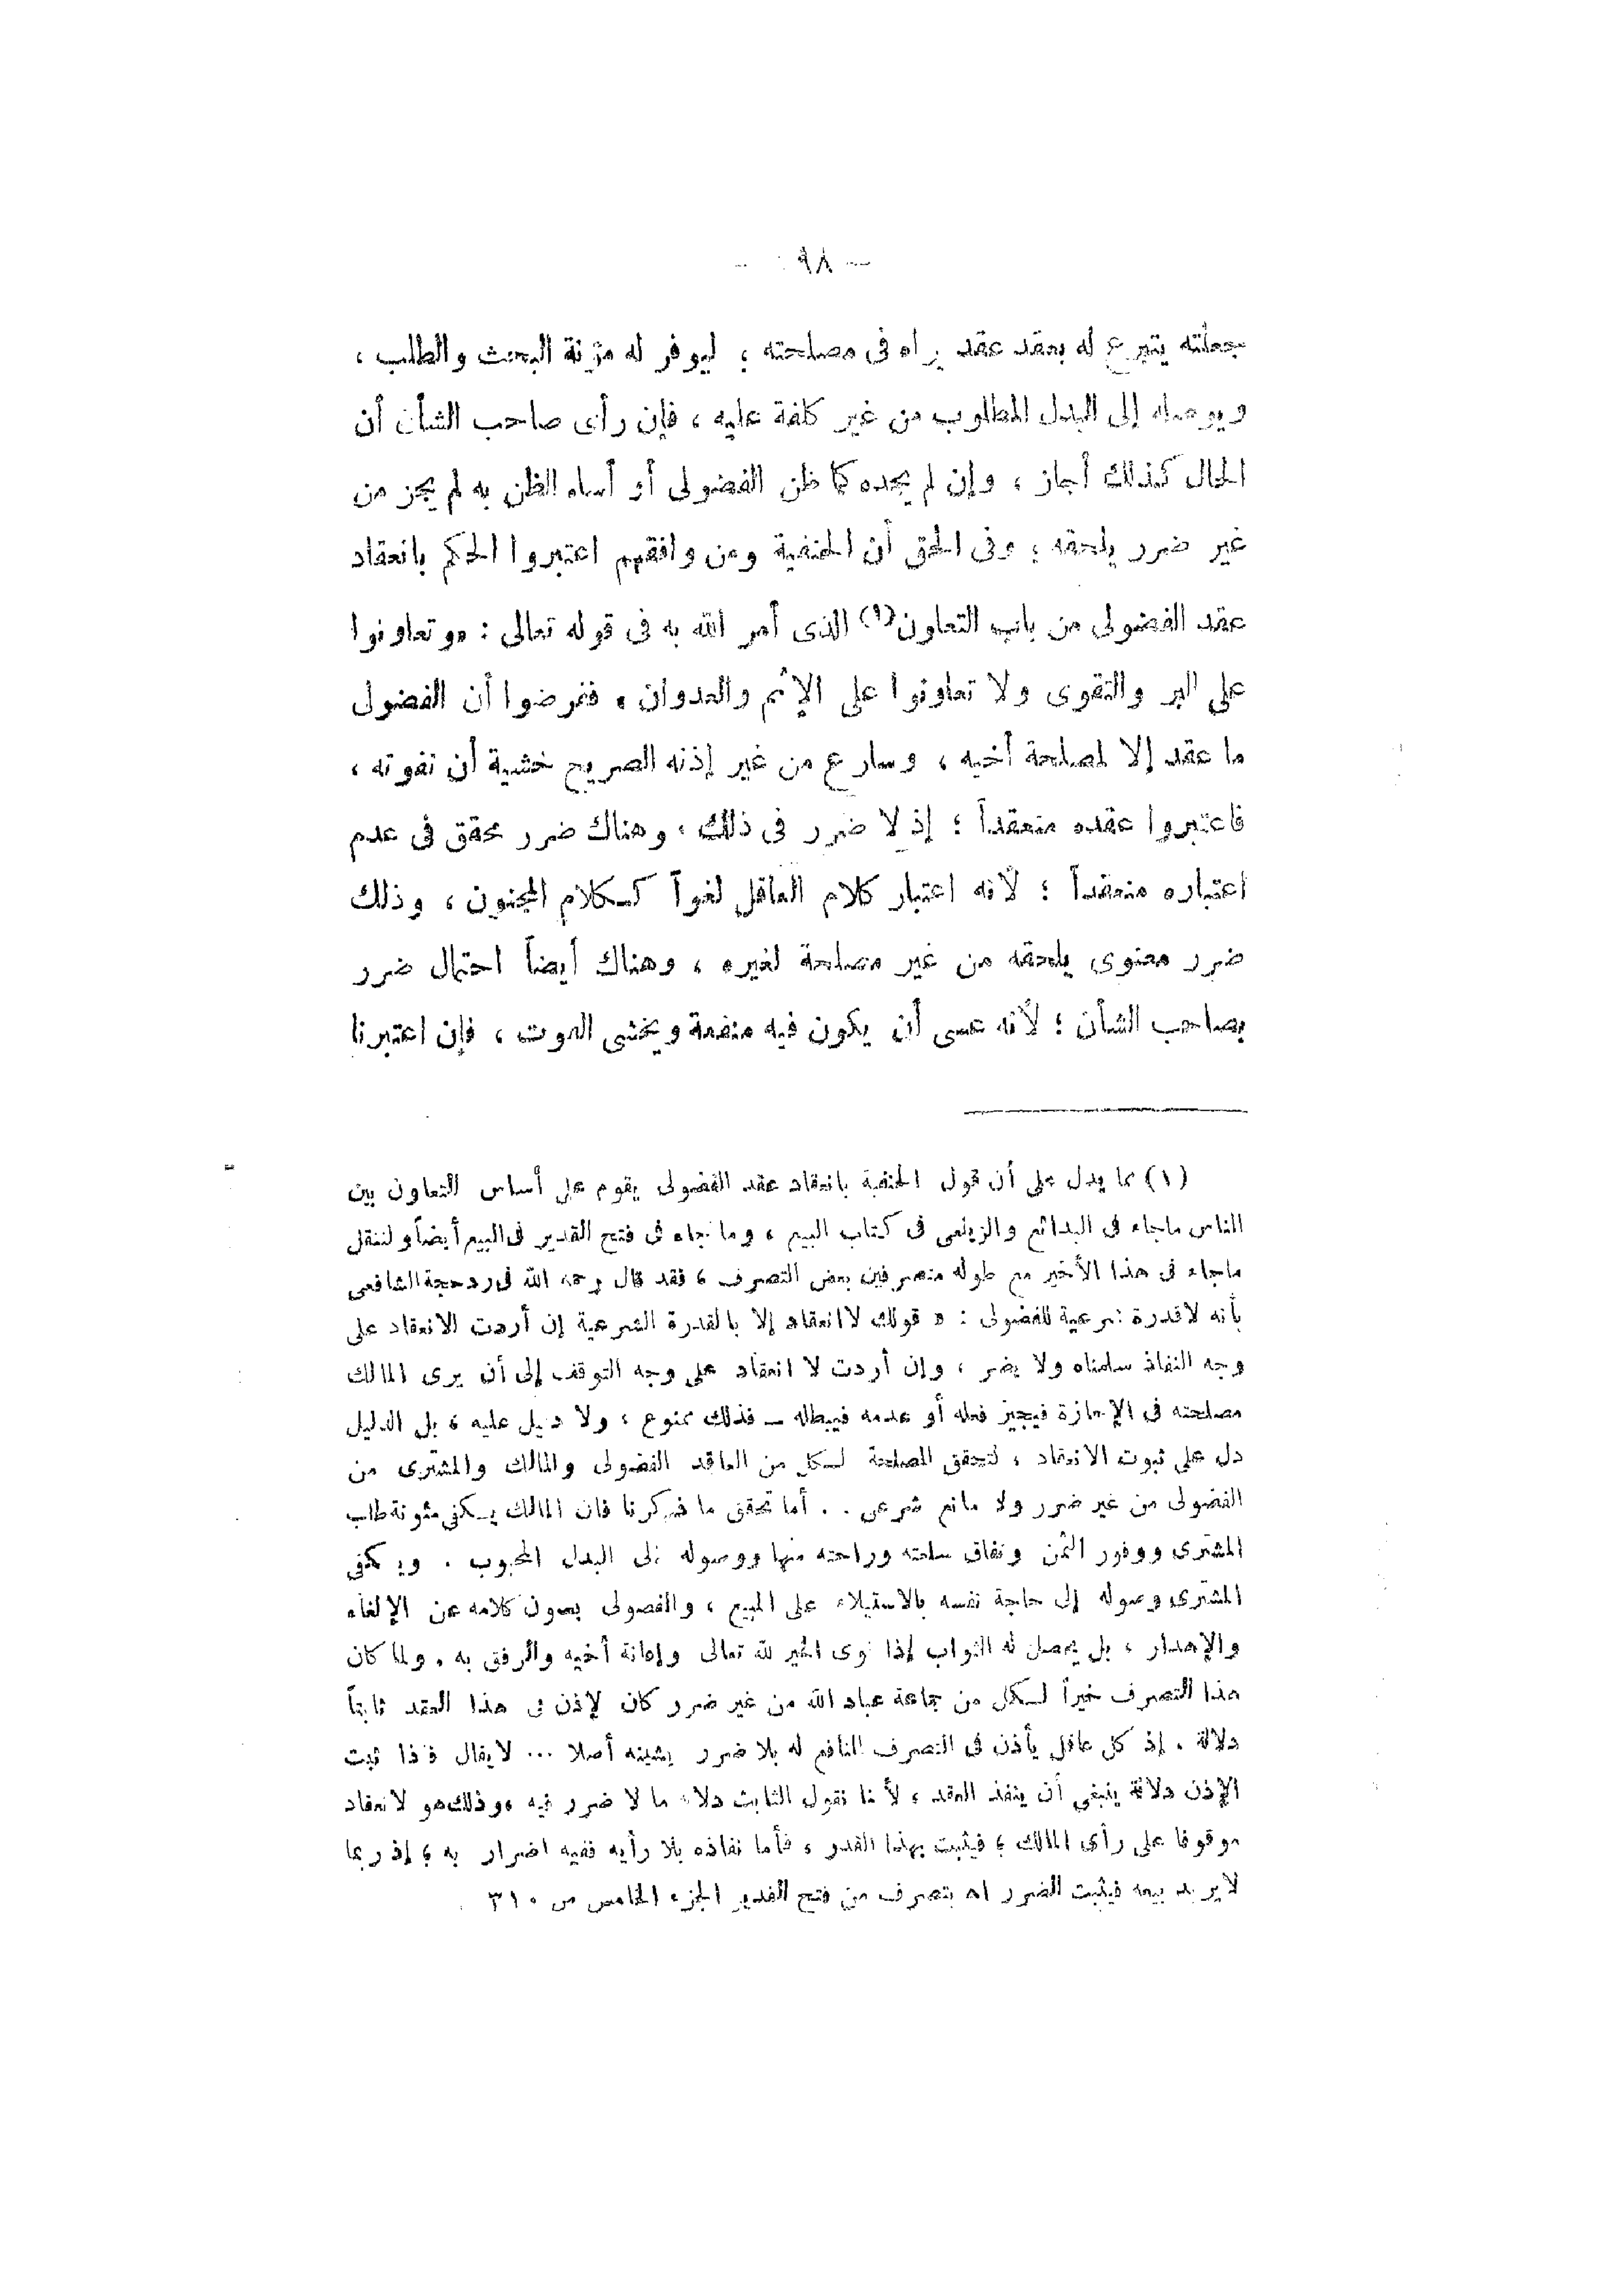 — ٩٨ —
جعلته يتبرع له بعقد عقد يراه فى مصلحته ؛ ليوفر له مؤنة البحث والطلب ،
ويوصله إلى البدل المطلوب من غير كلفة عليه ، فإن رأى صاحب الشأن أن
الحال كذلك أجاز ، وإن لم يجده كما ظن الفضولى أو أساء الظن به لم يجز من
غير ضرر يلحقه ؛ وفى الحق أن الحنفية ومن وافقهم اعتبروا الحكم بانعقاد
عقد الفضولى من باب التعاون(١) الذى أمر الله به فى قوله تعالى : «وتعاونوا
على البر والتقوى ولا تعاونوا على الإثم والعدوان» ففرضوا أن الفضول
ما عقد إلا لمصلحة أخيه ، وسارع من غير إذنه الصريح خشية أن تفوته ،
فاعتبروا عقده منعقداً ؛ إذ لا ضرر فى ذلك ، وهناك ضرر محقق فى عدم
اعتباره منعقداً ؛ لأنه اعتبار كلام العاقل لغواً كـكلام المجنون ، وذلك
ضرر معنوى يلحقه من غير مصلحة لغيره ، وهناك أيضاً احتمال ضرر
بصاحب الشأن ؛ لأنه عسى أن يكون فيه منفعة ويخشى الفوت ، فإن اعتبرنا
(١) مما يدل على أن قول الحنفية بانعقاد عقد الفضولى يقوم على أساس التعاون بين
الناس ماجاء فى البدائع والزيلعى فى كتاب البيع ، وما جاء فى فتح القدير فى البيع أيضاً ولننقل
ماجاء فى هذا الأخير مع طوله متصرفين بعض التصرف ، فقد قال رحمه الله فى رد حجة الشافعى
بأنه لا قدرة شرعية للفضولى : « قولك لا انعقاد إلا بالقدرة الشرعية إن أردت الانعقاد على
وجه النفاذ سلمناه ولا يضر ، وإن أردت لا انعقاد على وجه التوقف إلى أن يرى المالك
مصلحته فى الإجازة فيجيز فعله أو عدمه فيبطله ـ فذلك ممنوع ، ولا دليل عليه ، بل الدليل
دل على ثبوت الانعقاد ، لتحقق المصلحة لـكل من العاقد الفضولى والمالك والمشترى من
الفضولى من غير ضرر ولا مانع شرعى . . أما تحقق ما ذكرنا فان المالك يـكفى مئونة طلب
المشترى ووفور الثمن ونفاق سلعته وراحته منها ووصوله إلى البدل المحبوب . ويـكفى
المشترى وصوله إلى حاجة نفسه بالاستيلاء على المبيع ، والفضولى بصون كلامه عن الإلغاء
والإهدار ، بل يحصل له الثواب إذا نوى الخير لله تعالى وإعانة أخيه والرفق به . ولما كان
هذا التصرف خيراً لـكل من جماعة عباد الله من غير ضرر كان لإذن فى هذا العقد ثابتاً
دلالة . إذ كل عاقل يأذن فى التصرف النافع له بلا ضرر يشينه أصلا ... لا يقال فاذا ثبت
الإذن دلالة ينبغى أن ينفذ العقد ، لأنا نقول الثابت دلالة ما لا ضرر فيه ، وذلك هو لانعقاد
موقوفا على رأى المالك ؛ فيثبت بهذا القدر ، فأما نفاذه بلا رأيه ففيه اضرار به ؛ إذ ربما
لا يريد بيعه فيثبت الضرر اه بتصرف من فتح القدير الجزء الخامس ص ٣١٠ .